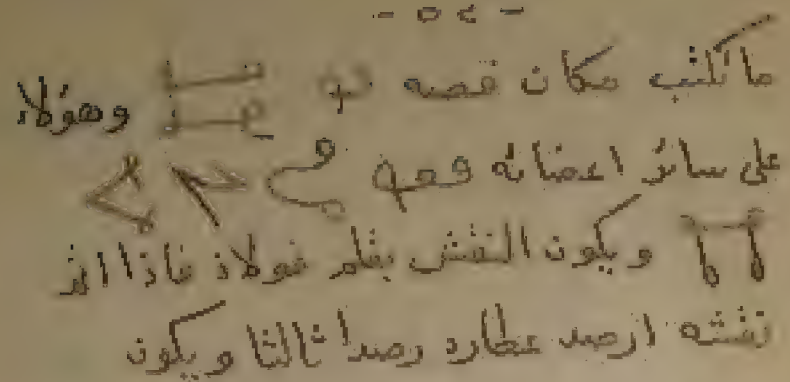 - ٥٤ -
ما تكتب مكان قصه وهؤلاء
على سائر اعضائه
ويكون النقش بقلم فولاذ فاذا اتم
نقشه ارصد عطارد رصدا ثالثا ويكون